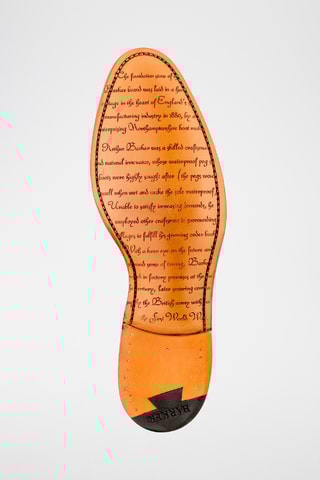 The foundation stone of
Barker brand was laid in a
in the heart of England's
manufacturing industry in 1880, by
enterprising Northamptonshire boot
Arthur Barker was a skilled craftsman
and natural innovator, whose waterproof peg
boots were highly sought after (the pegs
swell when wet and make the sole waterproof
Unable to satisfy increasing demands, he
employed other craftsmen in surrounding
villages to fulfill his growing order
With a keen eye on the future
and sense of timing, Barker
in factory premises at the
century, later securing
the British army with
the First World
BARKER